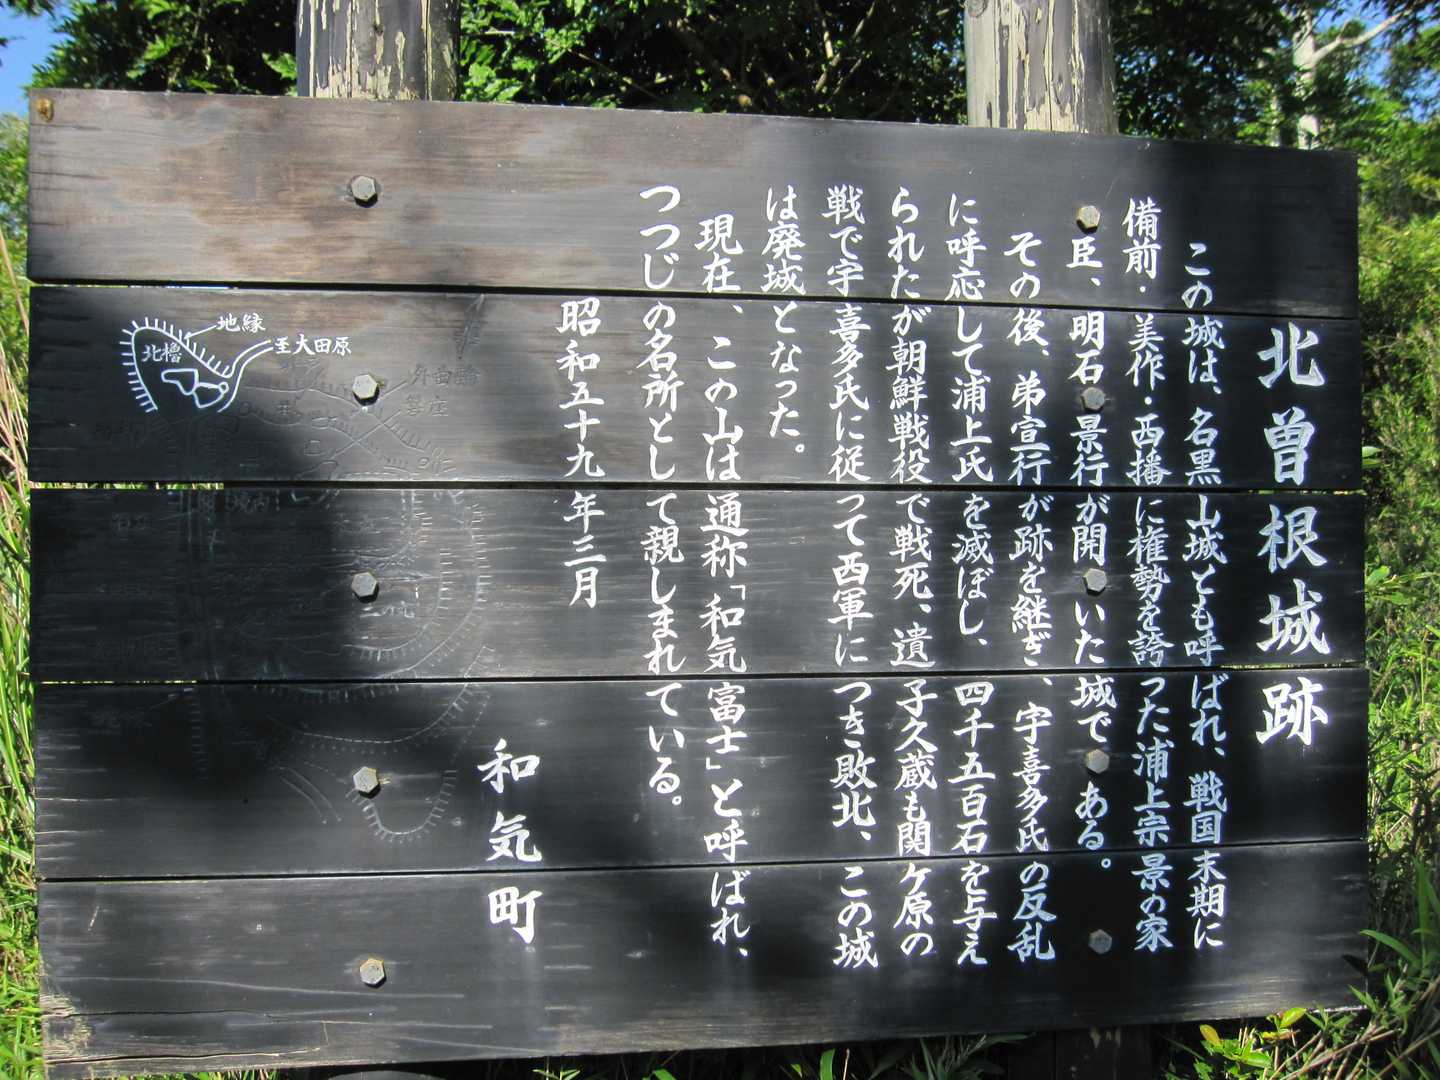 北曽根城跡
この城は、名黒山城とも呼ばれ、戦国末期に
備前・美作・西播に権勢を誇った浦上宗景の家
臣、明石景行が開いた城である。
その後、弟宣行が跡を継ぎ、宇喜多氏の反乱
に呼応して浦上氏を滅ぼし、四千五百石を与え
られたが朝鮮戦役で戦死、遺子久蔵も関ケ原の
戦で宇喜多氏に従って西軍につき敗北、この城
は廃城となった。
現在、この山は通称「和気富士」と呼ばれ、
つつじの名所として親しまれている。
昭和五十九年三月
和気町
地縁
北櫓
至大田原
外曲輪
磐座
二の丸